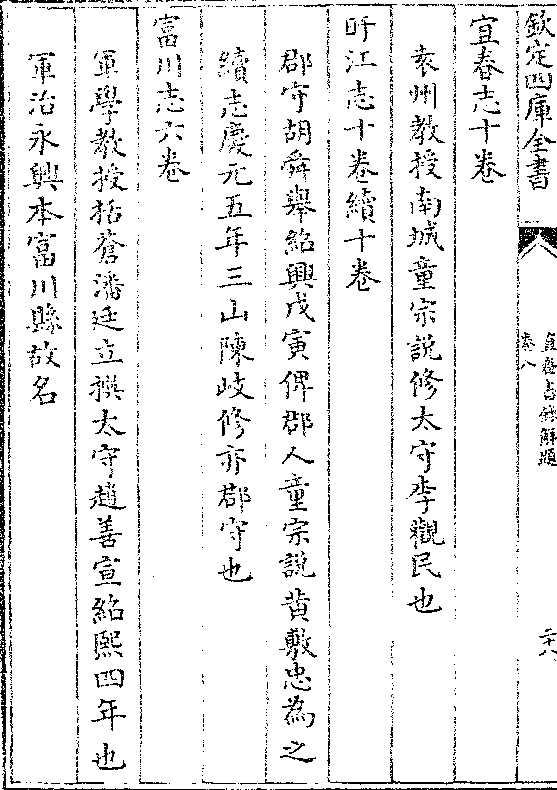 欽定四庫全書
直齋書錄解題
卷八
二十八
宜春志十卷
袁州教授南城童宗說修太守李觀民也
旴江志十卷續十卷
郡守胡舜舉紹興戊寅俾郡人童宗說黄敷忠為之
續志慶元五年三山陳岐修亦郡守也
富川志六卷
軍學教授括蒼潘廷立撰太守趙善宣紹熙四年也
軍治永興本富川縣故名